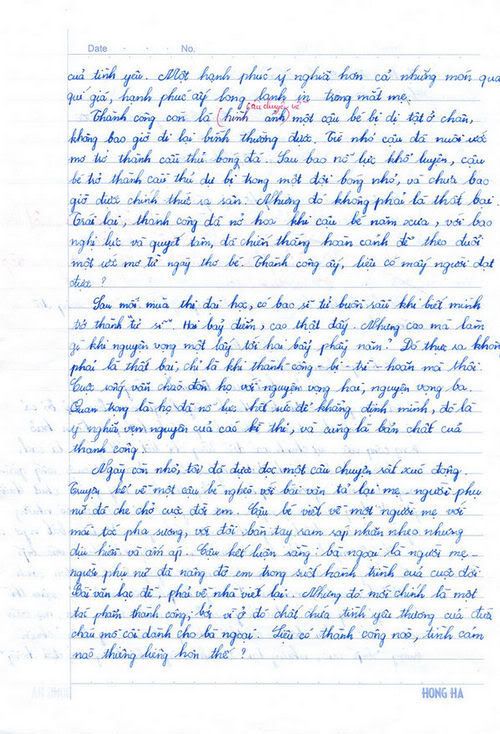 Date . . . No.
của tình yêu. Một hạnh phúc ý nghĩa hơn cả những món quà
quí giá, hạnh phúc ấy long lanh in trong mắt mẹ.
câu chuyện về
Thành công còn là (hình ảnh) một cậu bé bị dị tật ở chân,
không bao giờ đi lại bình thường được. Từ nhỏ cậu đã nuôi ước
mơ trở thành cầu thủ bóng đá. Sau bao nỗ lực khổ luyện, cậu
bé trở thành cầu thủ dự bị trong một đội bóng nhỏ, và chưa bao
giờ được chính thức ra sân. Nhưng đó không phải là thất bại.
Trái lại, thành công đã nở hoa khi cậu bé năm xưa, với bao
nghị lực và quyết tâm, đã chiến thắng hoàn cảnh để theo đuổi
một ước mơ từ ngày thơ bé. Thành công ấy, liệu có mấy người đạt
được ?
Sau mỗi mùa thi đại học, có bao sĩ tử buồn sầu khi biết mình
trở thành "tử sĩ". Hai bảy điểm, cao thật đấy. Nhưng cao mà làm
gì khi nguyện vọng một lấy tới hai bảy phẩy năm? Đó thực ra không
phải là thất bại, chỉ là khi thành-công-bị-trì-hoãn mà thôi.
Cuộc sống vẫn chào đón họ với nguyện vọng hai, nguyện vọng ba.
Quan trọng là họ đã nỗ lực hết sức để khẳng định mình, đó là
ý nghĩa vẹn nguyên của các kì thi, và cũng là bản chất của
thành công.
Ngày còn nhỏ, tôi đã được đọc một câu chuyện rất xúc động.
Truyện kể về một cậu bé nghèo với bài văn tả lại mẹ - người phụ
nữ đã che chở cuộc đời em. Cậu bé viết về một người mẹ với
mái tóc pha sương, với đôi bàn tay ram ráp nhăn nheo nhưng
dịu hiền và ấm áp. Cậu kết luận rằng: bà ngoại là người mẹ -
người phụ nữ đã nâng đỡ em trong suốt hành trình của cuộc đời.
Bài văn lạc đề, phải về nhà viết lại. Nhưng đó mới chính là một
tác phẩm thành công, bởi vì ở đó chất chứa tình yêu thương của đứa
cháu mồ côi dành cho bà ngoại. Liệu có thành công nào, tình cảm
nào thiêng liêng hơn thế ?
HONG HA